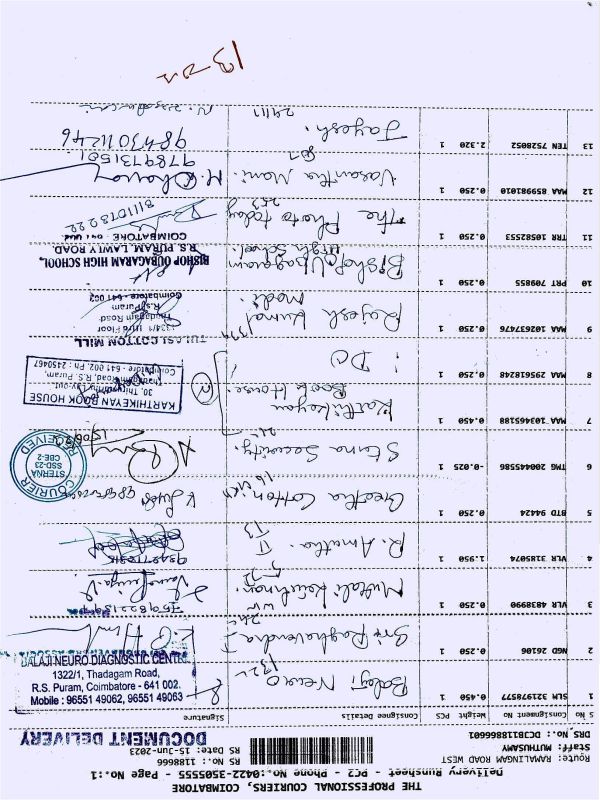 THE PROFESSIONAL COURIERS, COIMBATORE
Delivery Runsheet - PC2 - Phone No.:0422-3505555 - Page No.:1
Route: RAMALINGAM ROAD WEST
Staff: MUTHUSAMY
DRS No.: DC3B11886661
RS No.: 1188666
RS Date: 15-Jun-2023
DOCUMENT DELIVERY
S No Consignment No Weight PCS Consignee Details Signature
1 SLM 323978577 0.450 1 Balaji Neuro
1322
BALAJI NEURO DIAGNOSTIC CENTRE
1322/1, Thadagam Road,
R.S. Puram, Coimbatore - 641 002.
Mobile : 96551 49062, 96551 49063
2 NGD 26106 0.250 1 Sri Raghavendra
3 VLR 4838990 0.250 1
4 VLR 3185074 1.950 1 R. Amutha.
5 BTD 94424 0.250 1 Geetha Cotton
6 TMG 200445586 0.025 1 Sterna Security.
COURIER
STERNA
SSD-23
CBE-2
RECEIVED
7 MAA 103465188 0.450 1 Karthikeyan
Book House.
KARTHIKEYAN BOOK HOUSE
30, Thiruvenkatam Lay-out
Thadagam Road, R.S. Puram,
Coimbatore - 641 002. Ph : 2450467
8 MAA 295618248 0.250 1 DO
9 MAA 102637476 0.250 1 Rajesh Kumar
Modi.
TULASI COTTON MILL
Thadagam Road
R.S. Puram
Coimbatore - 641 002
10 PRT 709855 0.250 1 Bishop Ubagaram
High School.
BISHOP OUBAGARAM HIGH SCHOOL,
R.S. PURAM, LAWLY ROAD,
COIMBATORE
11 TRR 10582553 0.250 1 The Photo today
253
12 MAA 859981018 0.250 1 Vasantha Mani.
9789731501
13 TEN 7528052 2.320 1 Jayesh.
9843011246
13-22